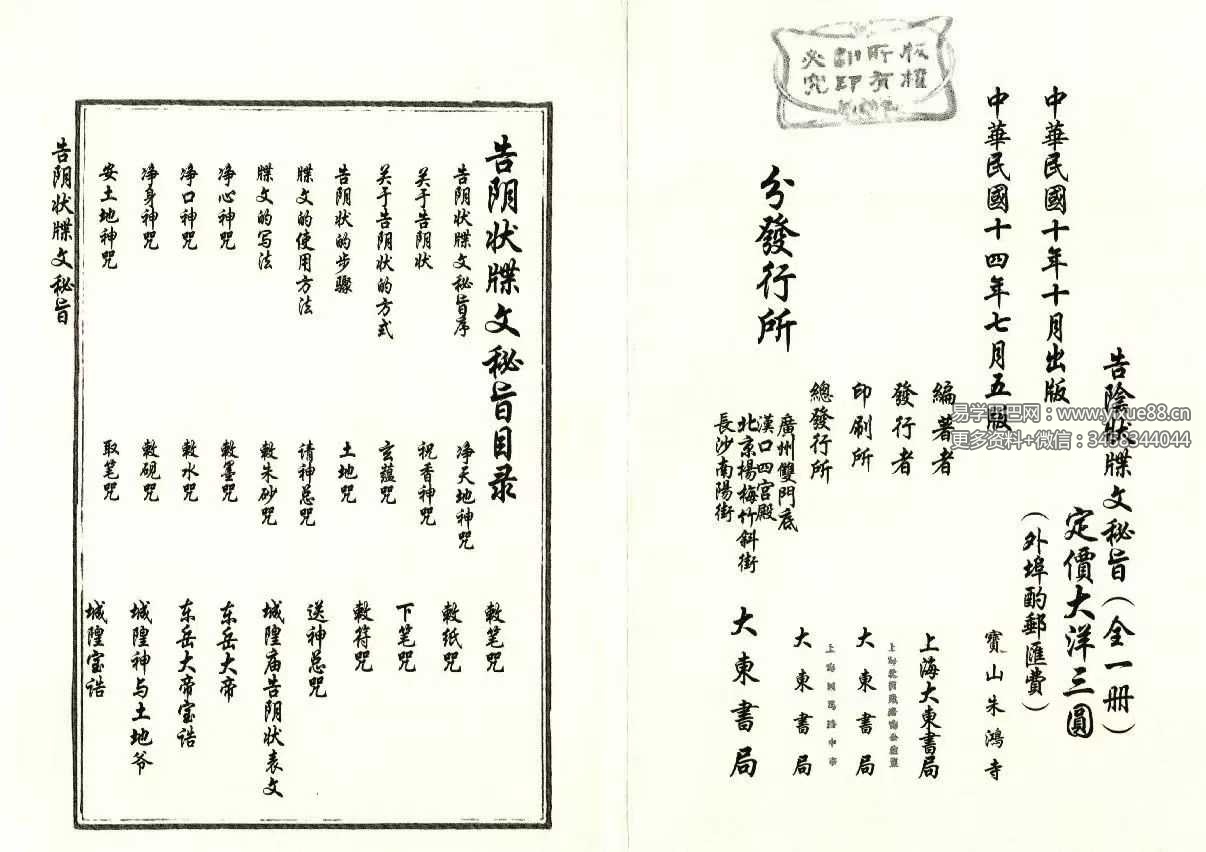 版權
所有
翻印
必究
告陰狀牒文秘旨（全一册）
定價大洋三圓
（外埠酌郵匯費）
中華民國十年十月出版
中華民國十四年七月五版
編著者
寶山朱鴻寺
發行者
上海大東書局
印刷所
大東書局
總發行所
大東書局
分發行所
廣州雙門底
漢口四宫殿
北京楊梅竹斜街
長沙南陽街
大東書局
易学巴巴网：www.yixue88.cn
更多资料+微信：3456344044
告阴状牒文秘旨目录
告阴状牒文秘旨序
关于告阴状
关于告阴状的方式
告阴状的步骤
牒文的使用方法
牒文的写法
净心神咒
净口神咒
净身神咒
安土地神咒
净天地神咒
祝香神咒
玄蕴咒
土地咒
请神总咒
敕朱砂咒
敕墨咒
敕水咒
敕砚咒
取笔咒
敕笔咒
敕纸咒
下笔咒
敕符咒
送神总咒
城隍庙告阴状表文
东岳大帝
东岳大帝宝诰
城隍神与土地爷
城隍宝诰
告阴状牒文秘旨